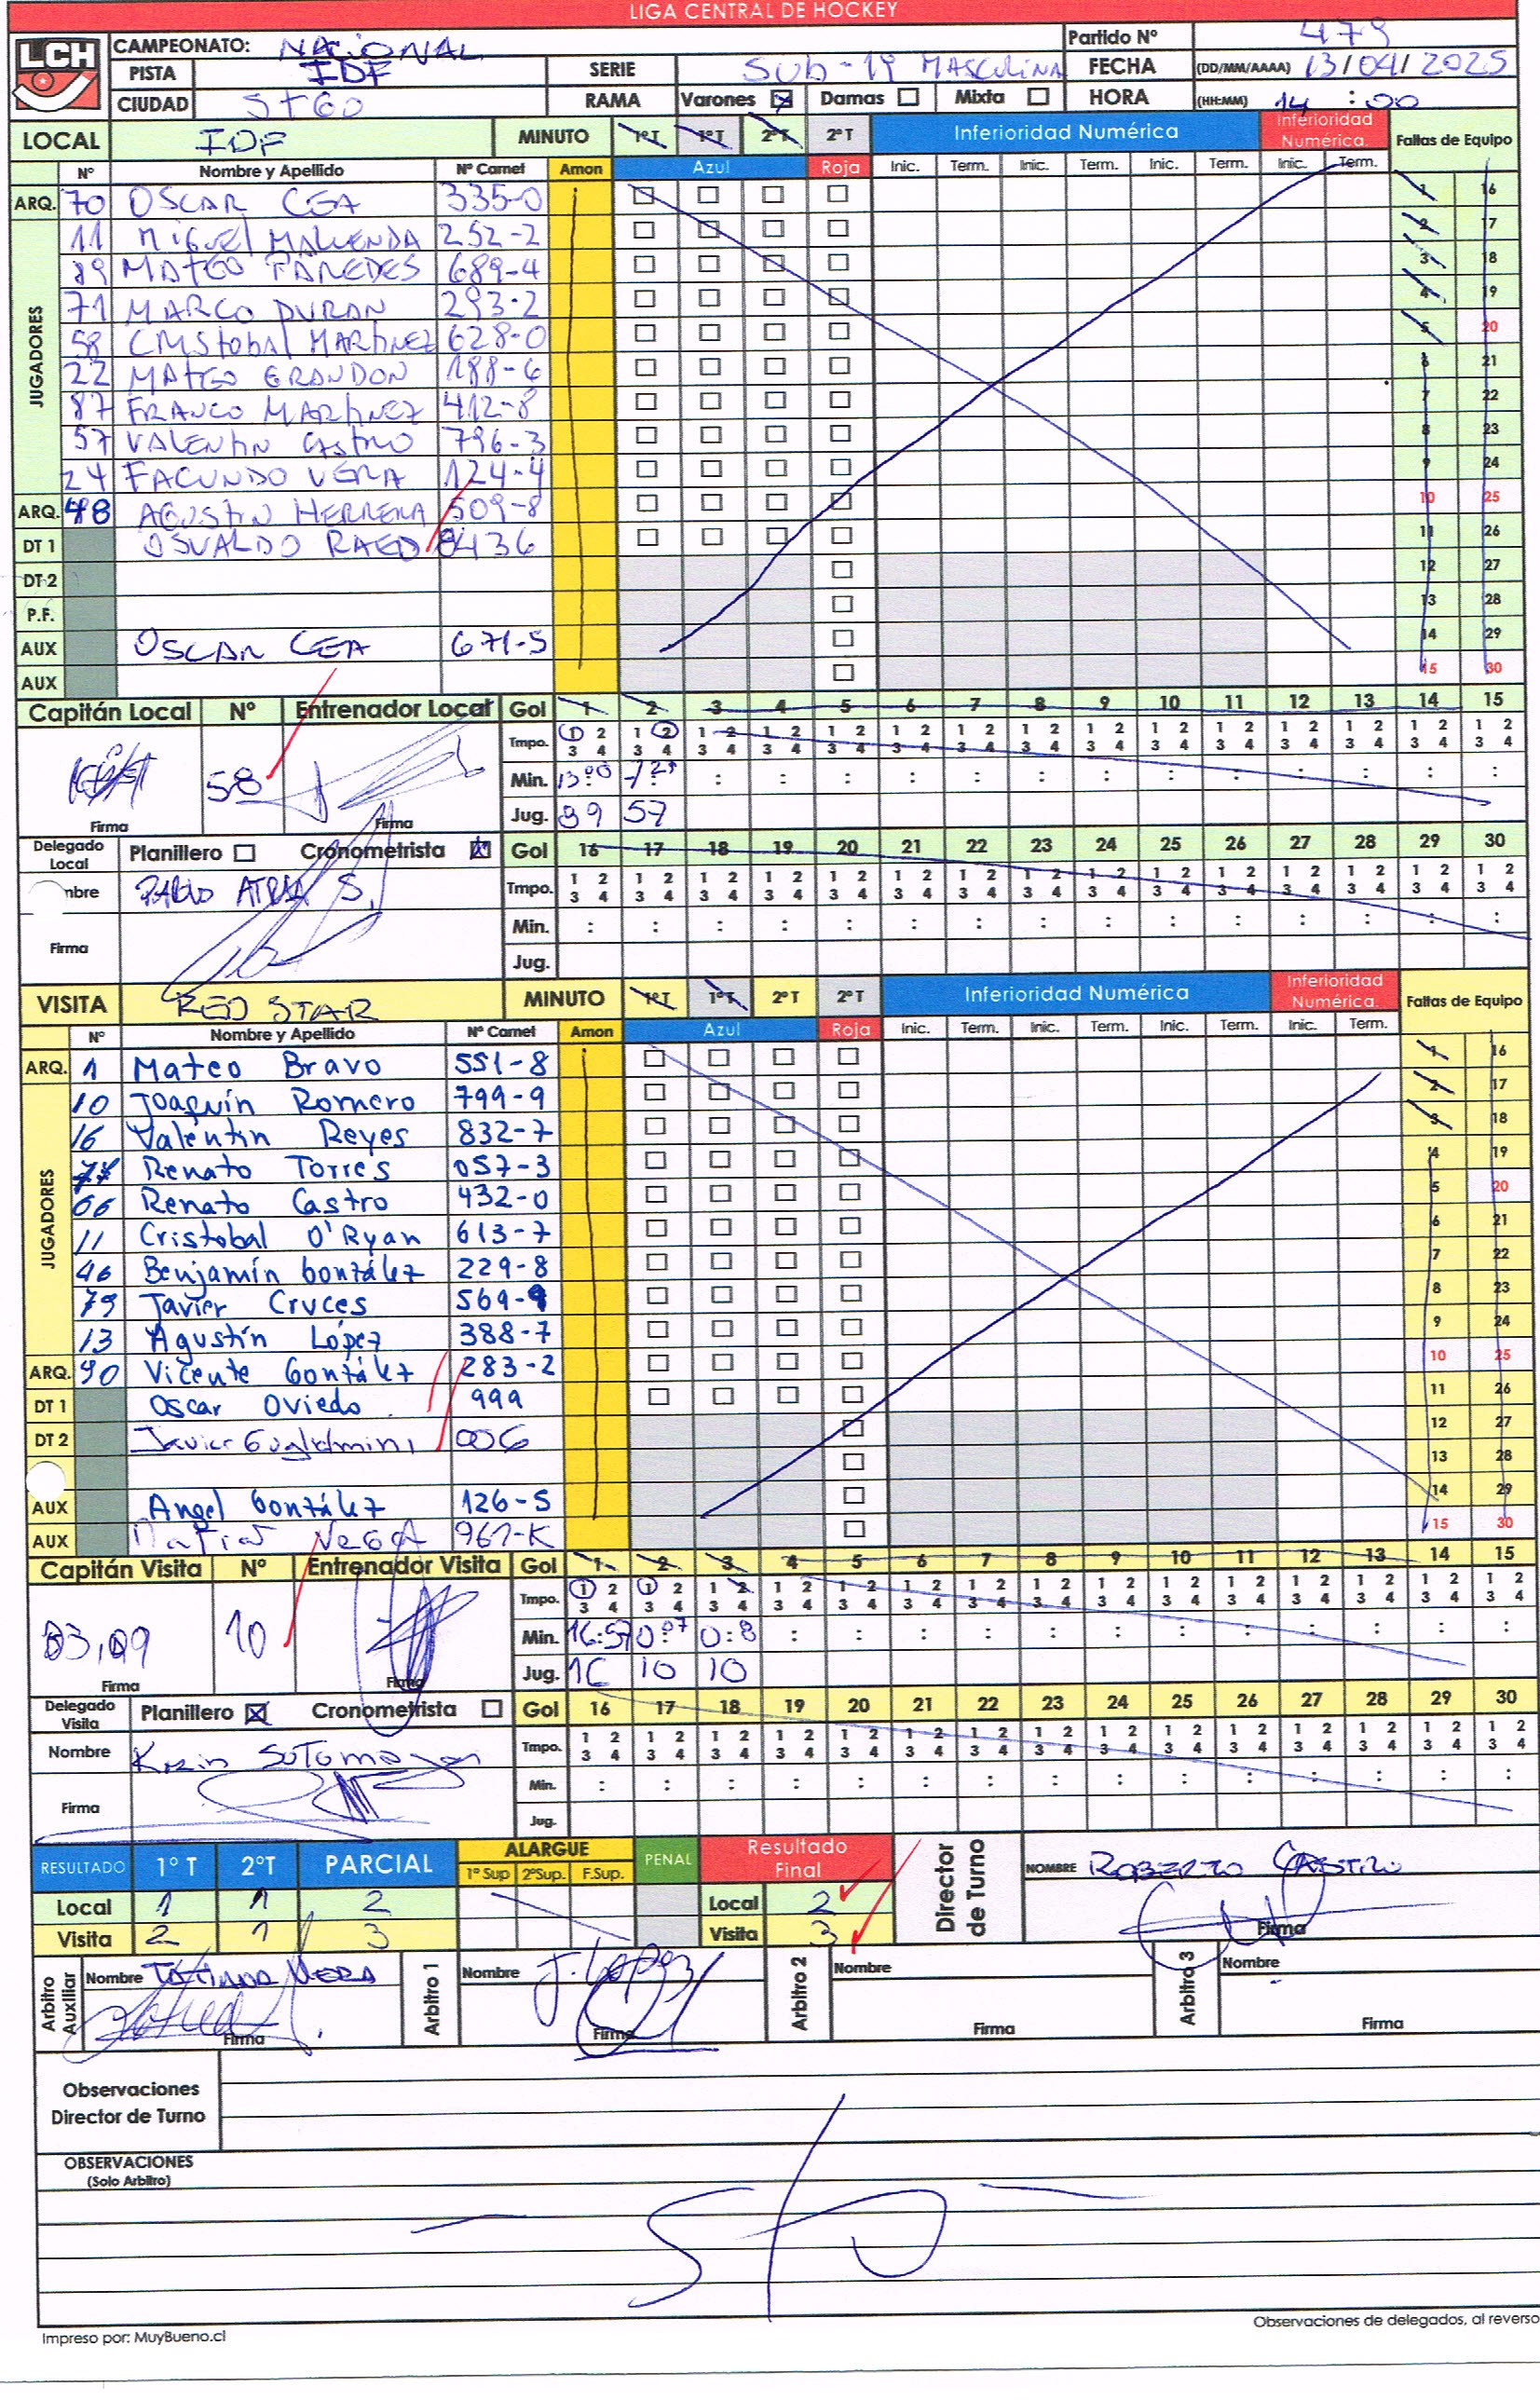 LIGA CENTRAL DE HOCKEY
LCH
CAMPEONATO: NACIONAL Partido Nº 479
PISTA IDF SERIE SUB-19 MASCULINA FECHA (DD/MM/AAAA) 13/04/2025
CIUDAD STGO RAMA Varones ☒ Damas ☐ Mixta ☐ HORA (HH:MM) 14:00
LOCAL IDF MINUTO 1ºT 1ºT 2ºT 2ºT Inferioridad Numérica Inferioridad Numérica. Fallas de Equipo
Nº Nombre y Apellido Nº Carnet Amon Azul Roja Inic. Term. Inic. Term. Inic. Term. Inic. Term.
ARQ. 70 OSCAR CEA 335-0 1 16
JUGADORES
11 MIGUEL MALUENDA 252-2 2 17
89 MATEO PAREDES 689-4 3 18
71 MARCO DURAN 293-2 4 19
58 CRISTOBAL MARTINEZ 628-0 5 20
22 MATEO GRANDON 188-6 6 21
87 FRANCO MARTINEZ 412-8 7 22
57 VALENTIN CASTRO 796-3 8 23
24 FACUNDO VERA 124-4 9 24
ARQ. 48 AGUSTIN HERRERA 509-8 10 25
DT 1 OSVALDO RAED 8436 11 26
DT 2 12 27
P.F. 13 28
AUX OSCAR CEA 671-5 14 29
AUX 15 30
Capitán Local Nº Entrenador Local Gol 1 2 3 4 5 6 7 8 9 10 11 12 13 14 15
Tmpo. 1 2 3 4
58 Min. 13:00 -7:21
Firma Firma Jug. 89 57
Delegado Local Planillero ☐ Cronometrista ☒ Gol 16 17 18 19 20 21 22 23 24 25 26 27 28 29 30
mbre PABLO ATRIA S. Tmpo. 1 2 3 4
Firma Min.
Jug.
VISITA RED STAR MINUTO 1ºT 1ºT 2ºT 2ºT Inferioridad Numérica Inferioridad Numérica. Fallas de Equipo
Nº Nombre y Apellido Nº Carnet Amon Azul Roja Inic. Term. Inic. Term. Inic. Term. Inic. Term.
ARQ. 1 Mateo Bravo 551-8 1 16
JUGADORES
10 Joaquín Romero 799-9 2 17
16 Valentín Reyes 832-7 3 18
77 Renato Torres 057-3 4 19
66 Renato Castro 432-0 5 20
11 Cristobal O'Ryan 613-7 6 21
46 Benjamín González 229-8 7 22
79 Javier Cruces 569-9 8 23
13 Agustín López 388-7 9 24
ARQ. 90 Vicente González 283-2 10 25
DT 1 Oscar Oviedo 999 11 26
DT 2 Javier Guglielmini 006 12 27
13 28
AUX Angel González 126-5 14 29
AUX Matias Vega 961-K 15 30
Capitán Visita Nº Entrenador Visita Gol 1 2 3 4 5 6 7 8 9 10 11 12 13 14 15
Tmpo. 1 2 3 4
10 Min. 16:57 0:07 0:8
Firma Firma Jug. 16 10 10
Delegado Visita Planillero ☒ Cronometrista ☐ Gol 16 17 18 19 20 21 22 23 24 25 26 27 28 29 30
Nombre Karin Sotomayor Tmpo. 1 2 3 4
Firma Min.
Jug.
RESULTADO 1º T 2ºT PARCIAL ALARGUE 1º Sup 2ºSup. F.Sup. PENAL Resultado Final Director de Turno NOMBRE ROBERTO CASTRO
Local 1 1 2 Local 2
Visita 2 1 3 Visita 3 Firma
Arbitro Auxiliar Nombre TATIANA MERA Arbitro 1 Nombre J. Lopez Arbitro 2 Nombre Arbitro 3 Nombre
Firma Firma Firma Firma
Observaciones Director de Turno
OBSERVACIONES (Solo Arbitro)
S/O
Impreso por: MuyBueno.cl Observaciones de delegados, al reverso